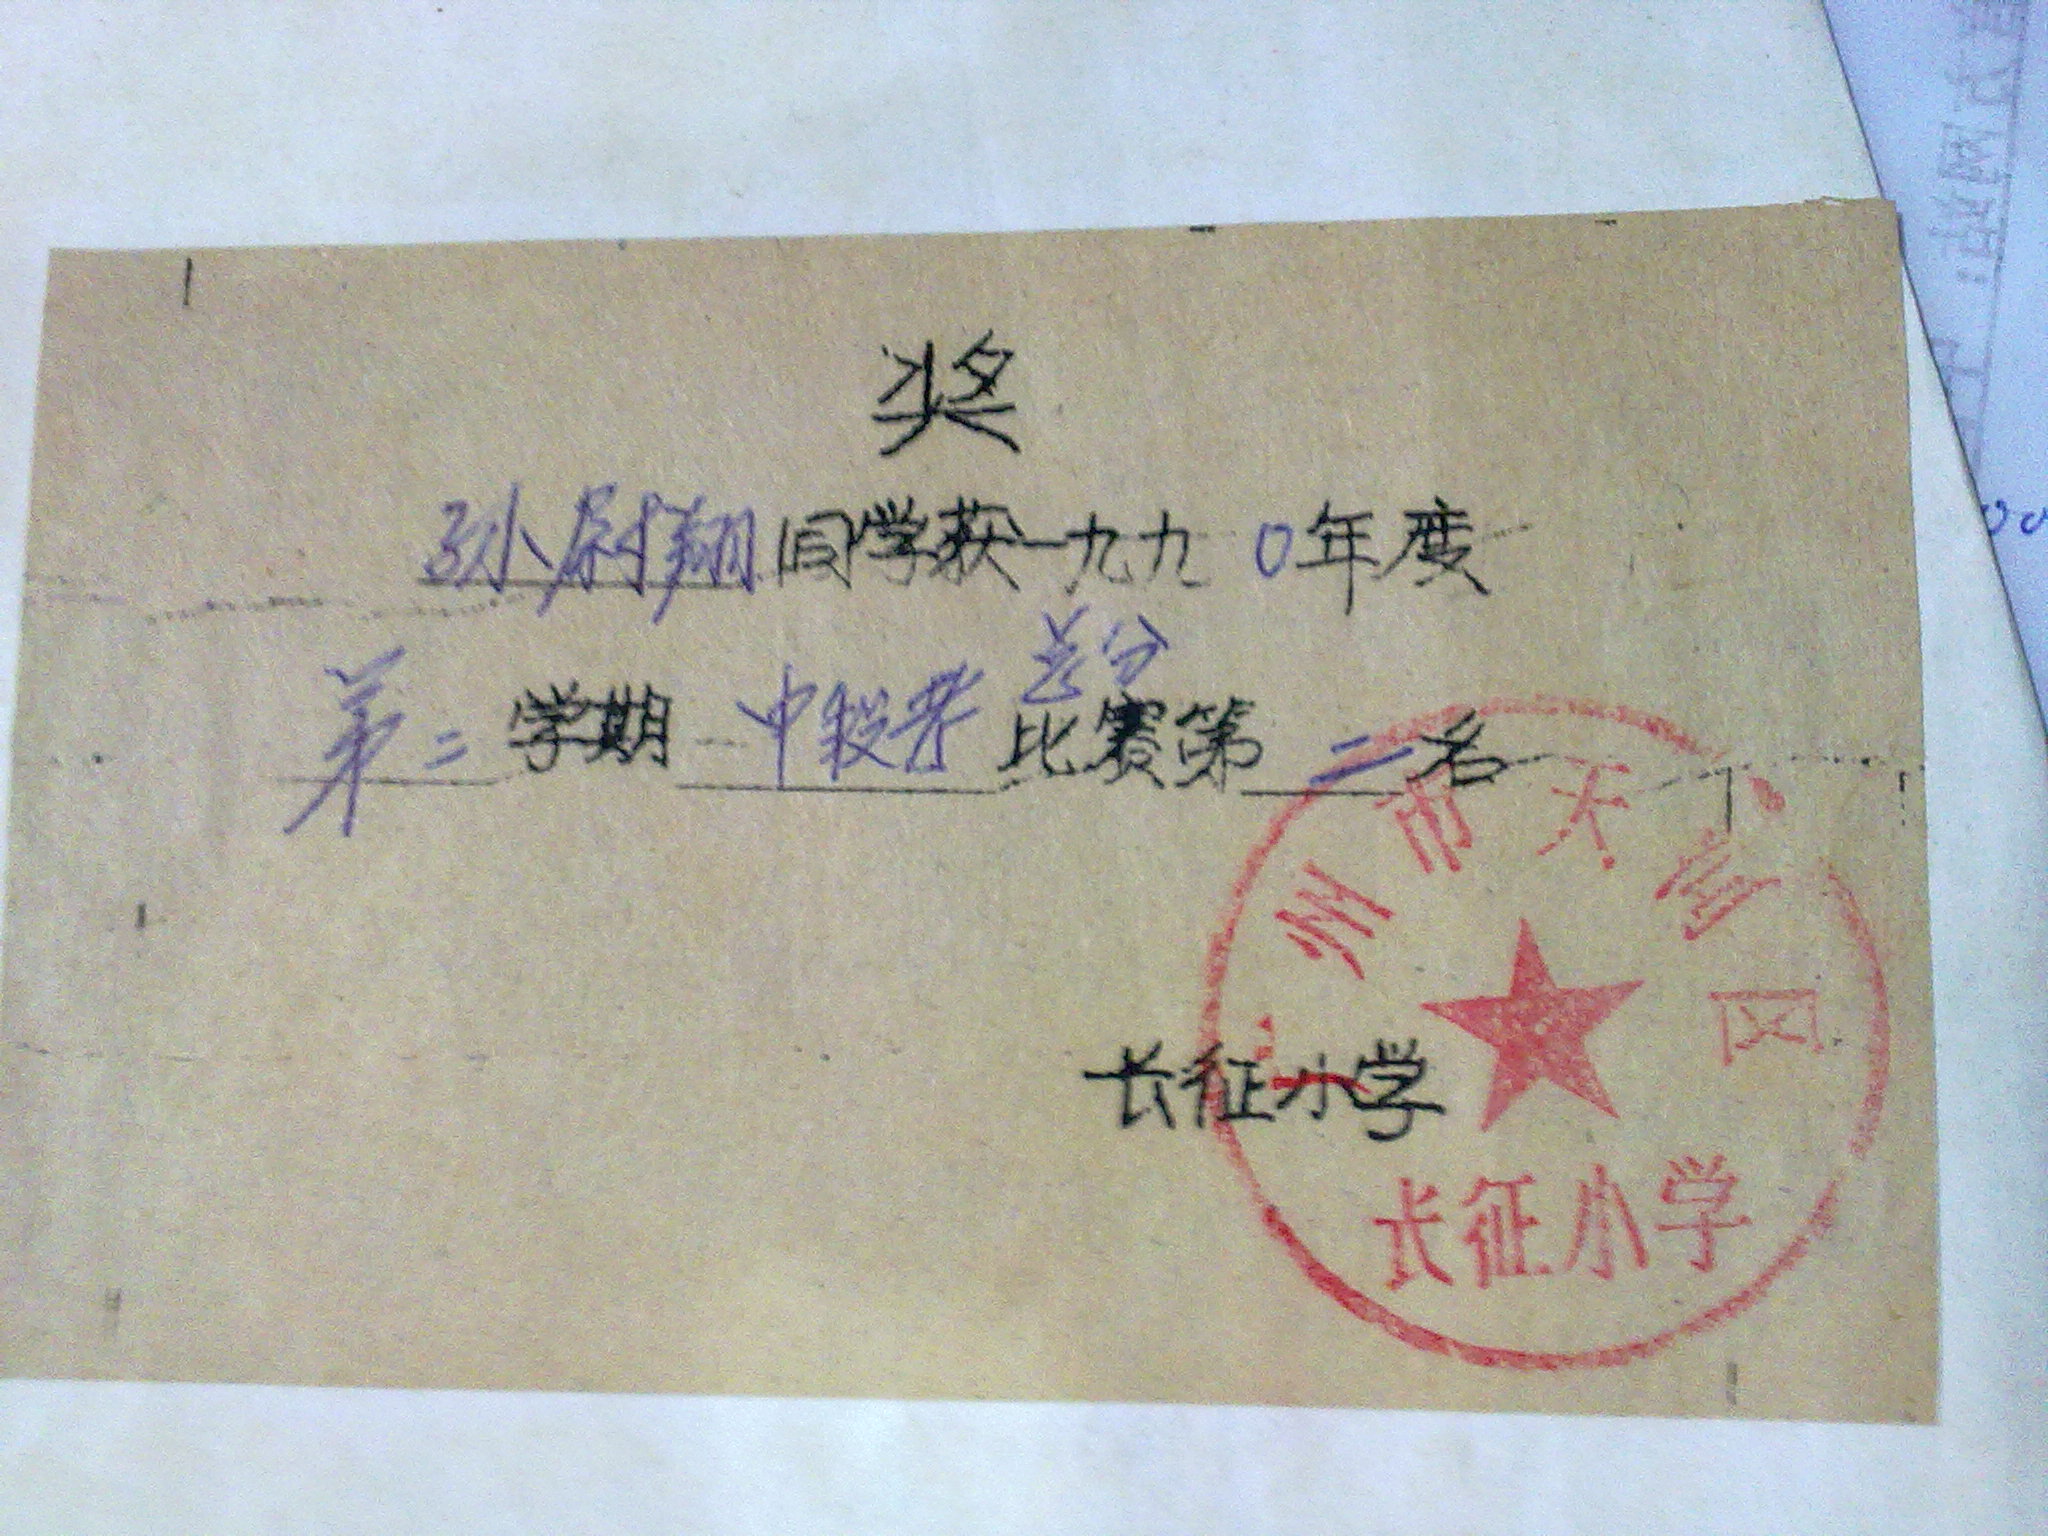 奖
孙尉翔同学获一九九0年度
总分
第二学期中段考比赛第二名
州市天
长征小学
长征小学